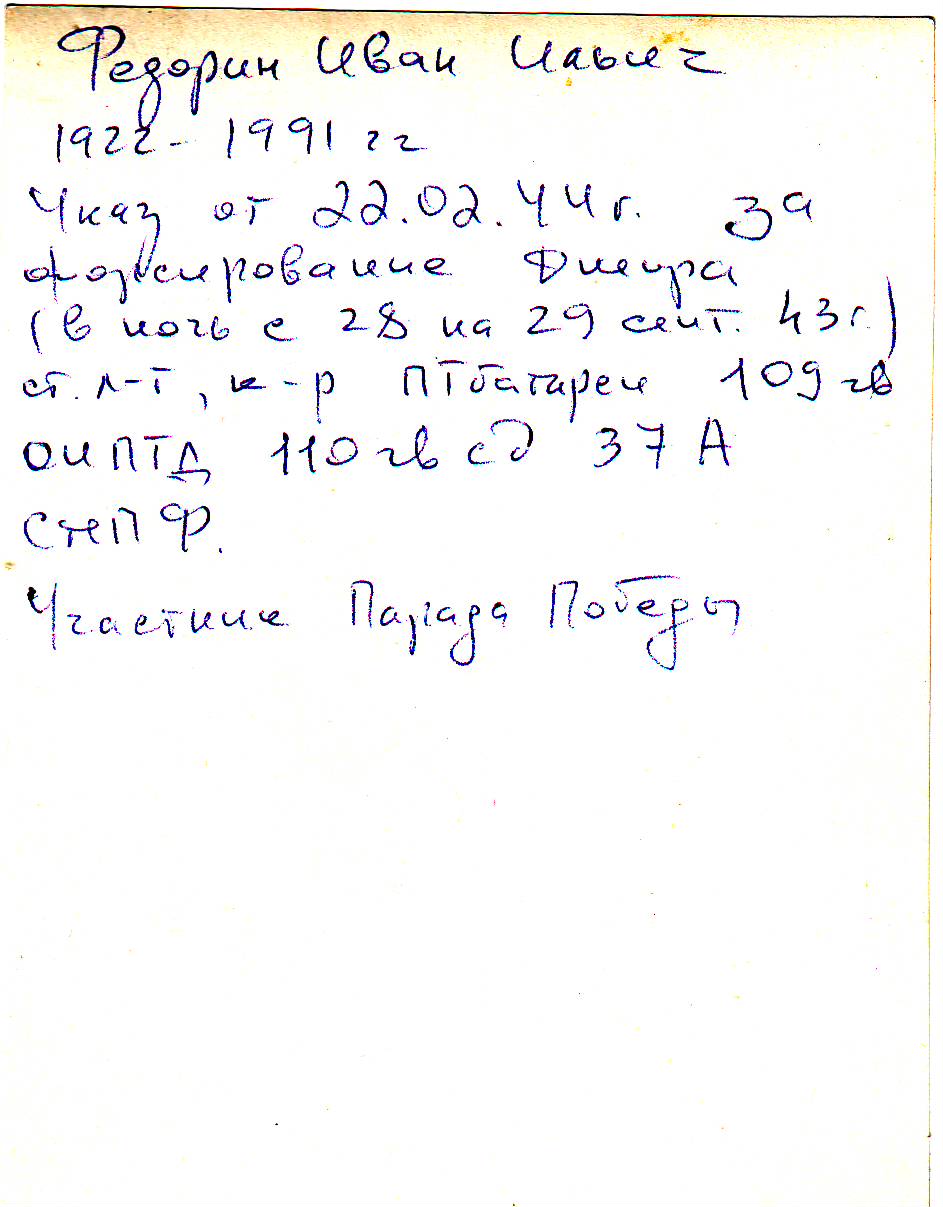 Федорин Иван Ильич
1922 - 1991 гг
Указ от 22.02.44 г. за
форсирование Днепра
(в ночь с 28 на 29 сент. 43 г.)
ст. л-т, к-р ПТбатареи 109 гв
ОИПТД 110 гв сд 37 А
СтепФ.
Участник Парада Победы